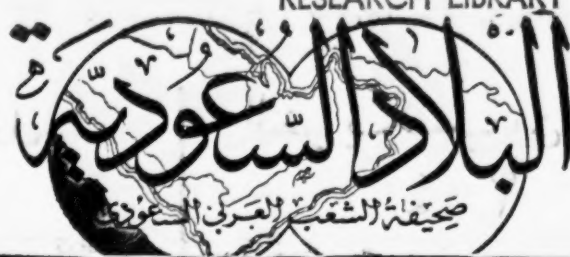 RESEARCH LIBRARY
البلاد السعودية
صحيفة الشعب العربي السعودي